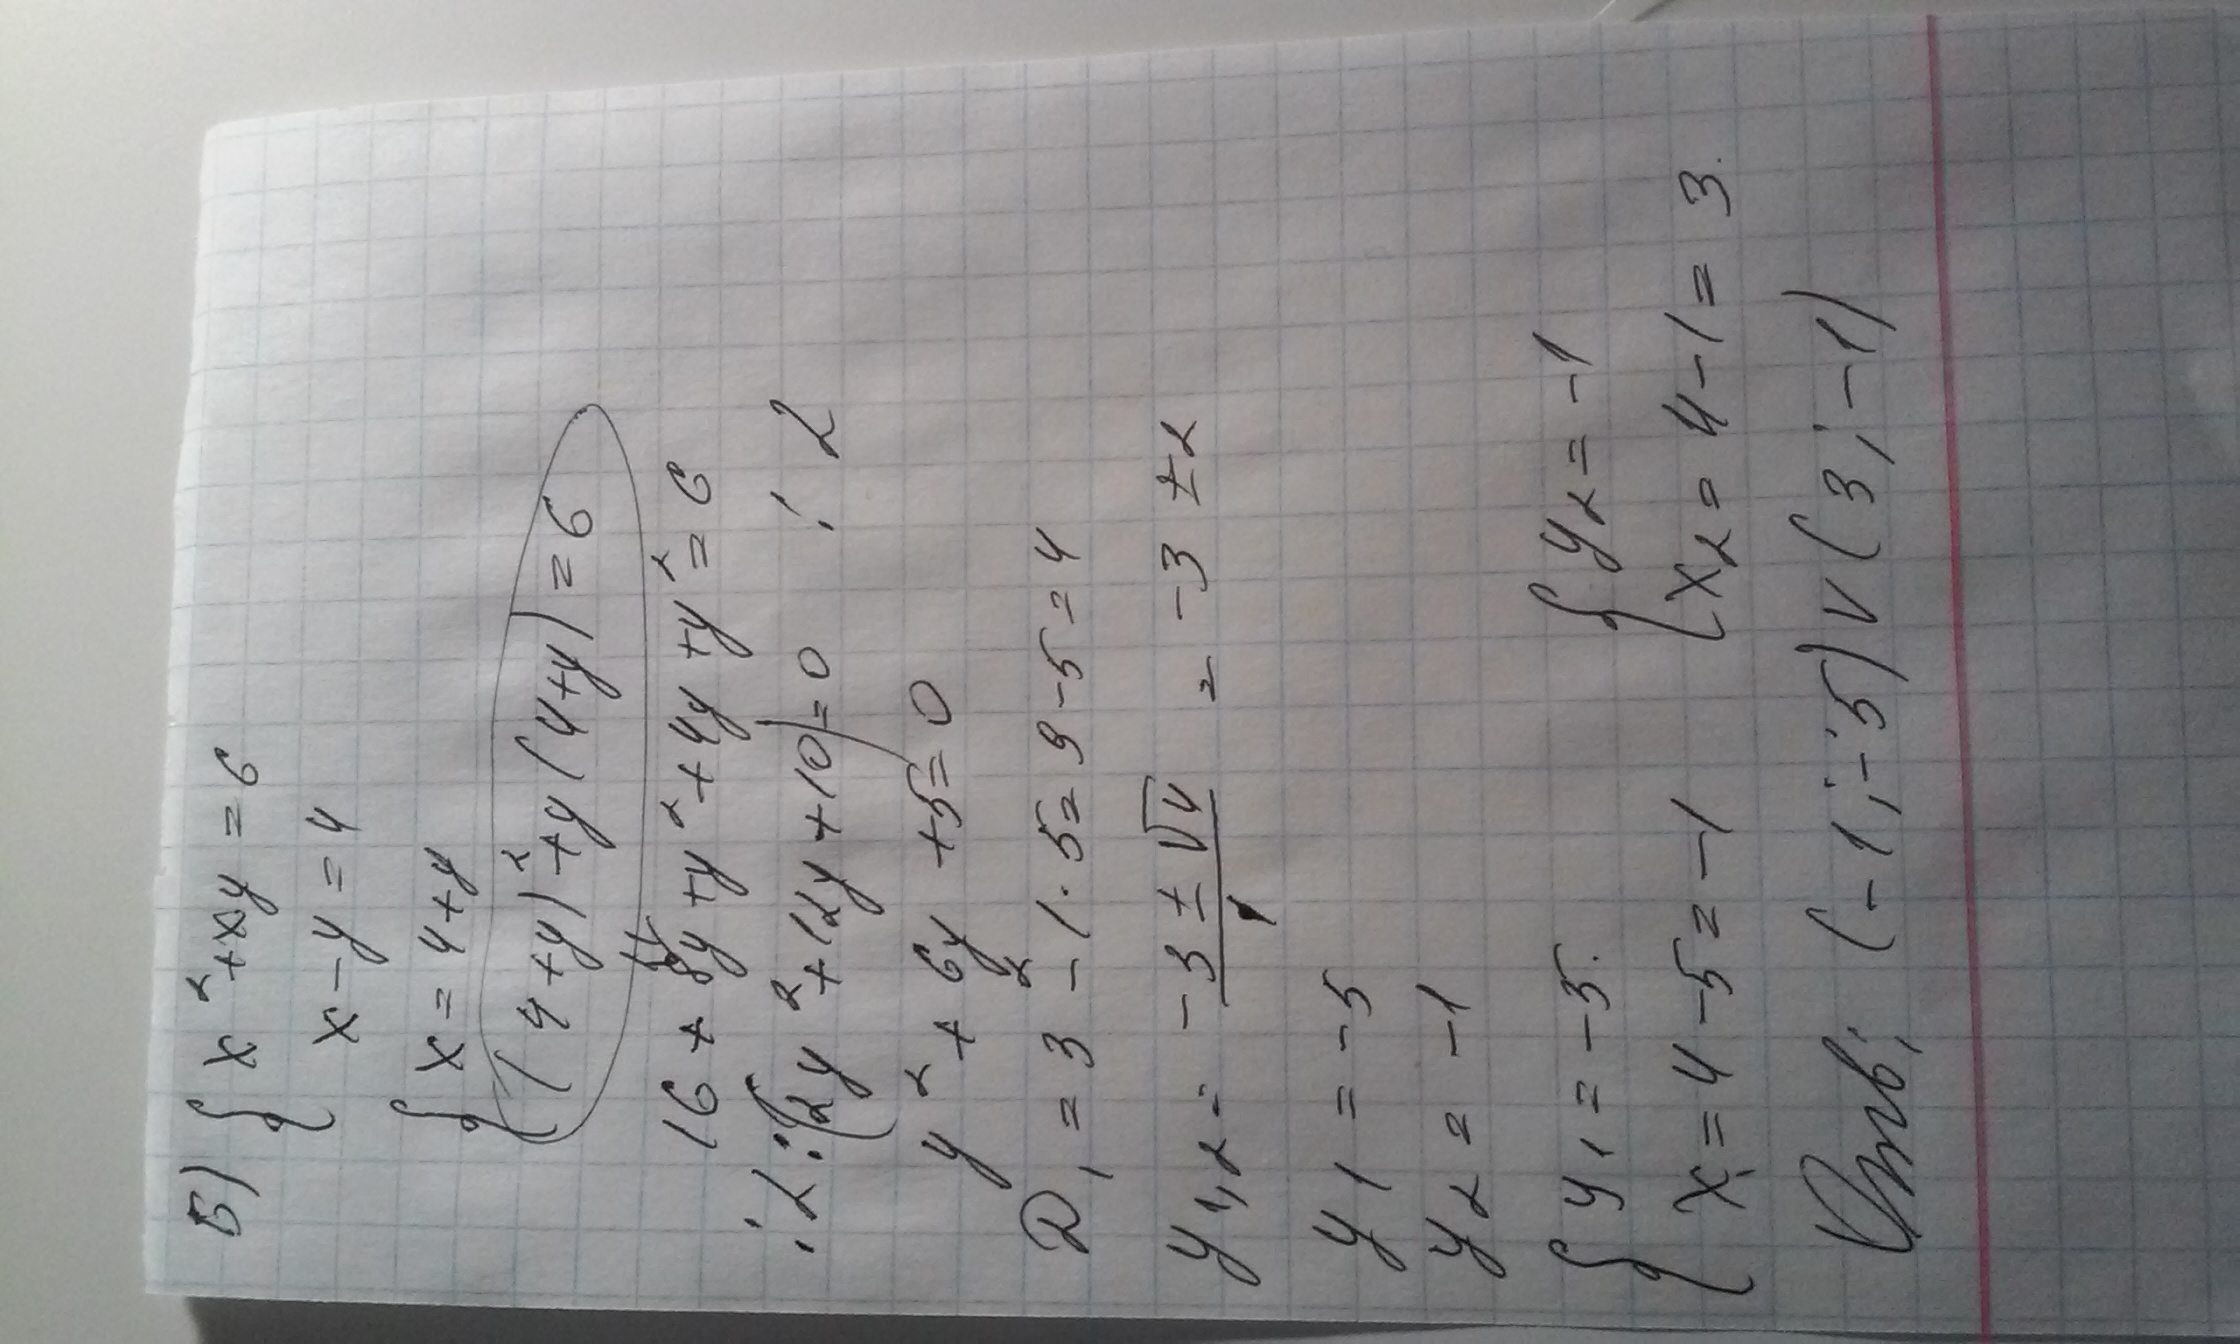 Б) { x² + xy = 6
x - y = 4
{ x = 4 + y
(4 + y)² + y(4 + y) = 6
16 + 8y + y² + 4y + y² = 6
:2: (2y² + 12y + 10 = 0 : 2
y² + 6y + 5 = 0
D₁ = 3² - 1·5 = 9 - 5 = 4
y₁,₂ = (-3 ± √4)/1 = -3 ± 2
y₁ = -5
y₂ = -1
{ y₁ = -5. { y₂ = -1
x₁ = 4 - 5 = -1 x₂ = 4 - 1 = 3.
Отв; (-1; -5) V (3; -1)